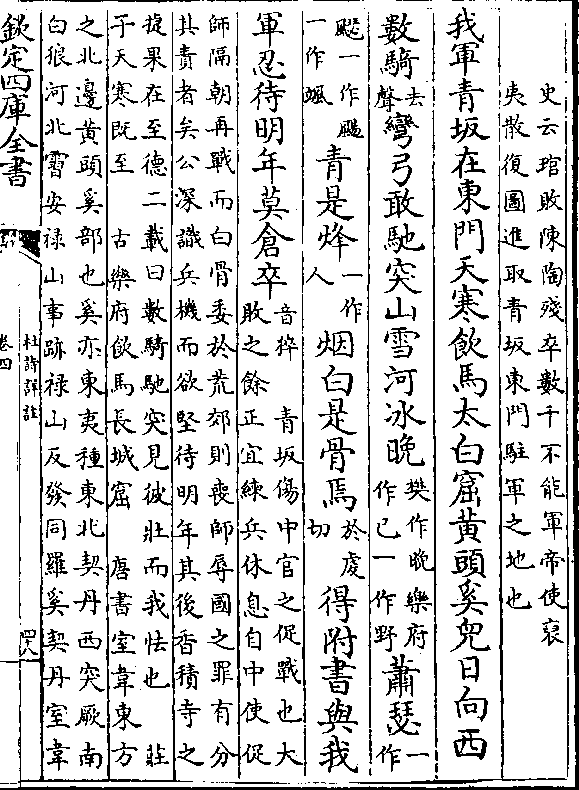 史云琯敗陳陶殘卒數千不能軍帝使裒
夷散復圖進取青坂東門駐軍之地也
我軍青坂在東門天寒飲馬太白窟黄頭奚兒日向西
數騎去聲彎弓敢馳突山雪河冰晚樊作晚樂府作已一作野蕭瑟一作
一作一作颯青是烽一作人烟白是骨焉於虔切得附書與我
軍忍待明年莫倉卒音猝 青坂傷中官之促戰也大
敗之餘正宜練兵休息自中使促
師隔朝再戰而白骨委於荒郊則喪師辱國之罪有分
其責者矣公深識兵機而欲堅待明年其後香積寺之
捷果在至德二載曰數騎馳突見彼壯而我怯也 莊
子天寒既至 古樂府飲馬長城窟 唐書室韋東方
之北邊黄頭奚部也奚亦東夷種東北契丹西突厥南
白狼河北霫安禄山事跡禄山反發同羅奚契丹室韋
欽定四庫全書
杜詩詳註
卷四